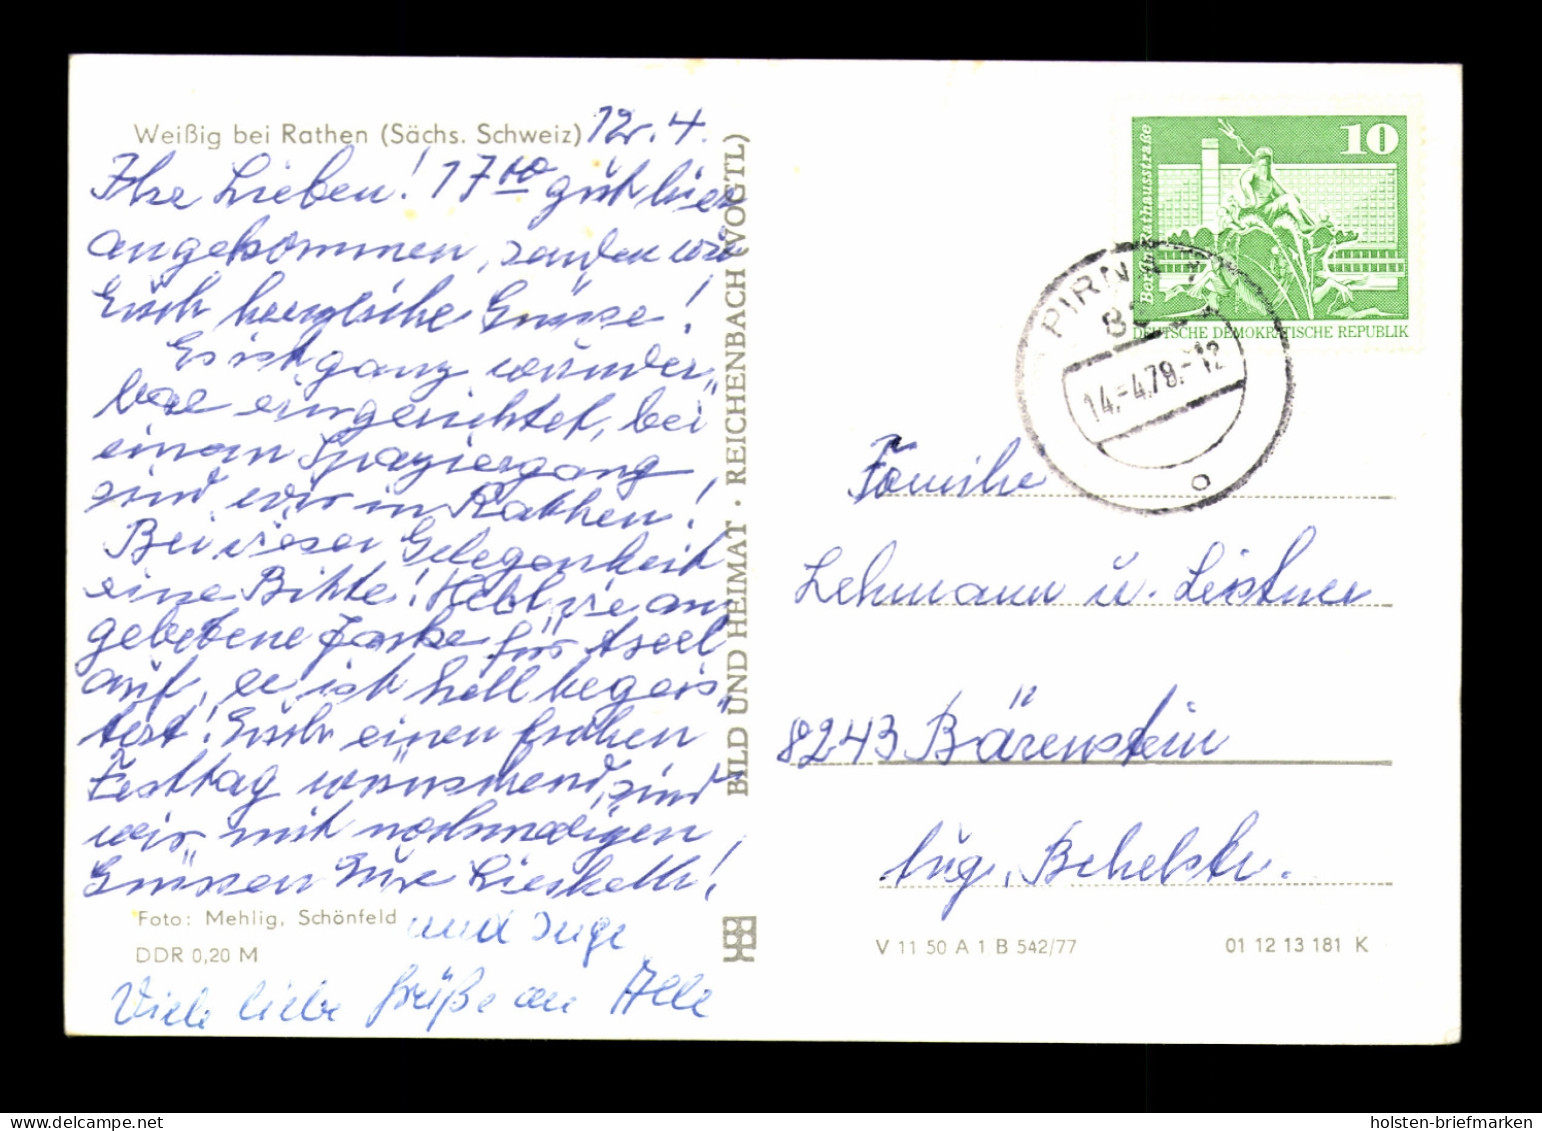 Weißig bei Rathen (Sächs. Schweiz) 12. 4.
Ihr Lieben! 17 00 gut hier
angekommen, senden wir
Euch herzliche Grüsse!
Es ist ganz wunder„
bar eingerichtet, bei
einem Spaziergang
sind wir in Rathen!
Bei dieser Gelegenheit
eine Bitte! Hebt die an
gebotene Jacke für Axel
auf, er ist hell begeis„
tert! Euch einen frohen
Festtag wünschend, sind
wir mit nochmaligen
Grüssen Eure Lieskath!
und Inge
Viele liebe Grüße an Alle
Foto: Mehlig, Schönfeld
DDR 0,20 M
BILD UND HEIMAT · REICHENBACH (VOGTL)
10
Rathausstraße
DEUTSCHE DEMOKRATISCHE REPUBLIK
PIRNA
14.-4.79.-12
o
Familie
Lehmann u. Leistner
8243 Bärenstein
Aug. Bebelstr.
V 11 50 A 1 B 542/77
01 12 13 181 K
holsten-briefmarken
www.delcampe.net